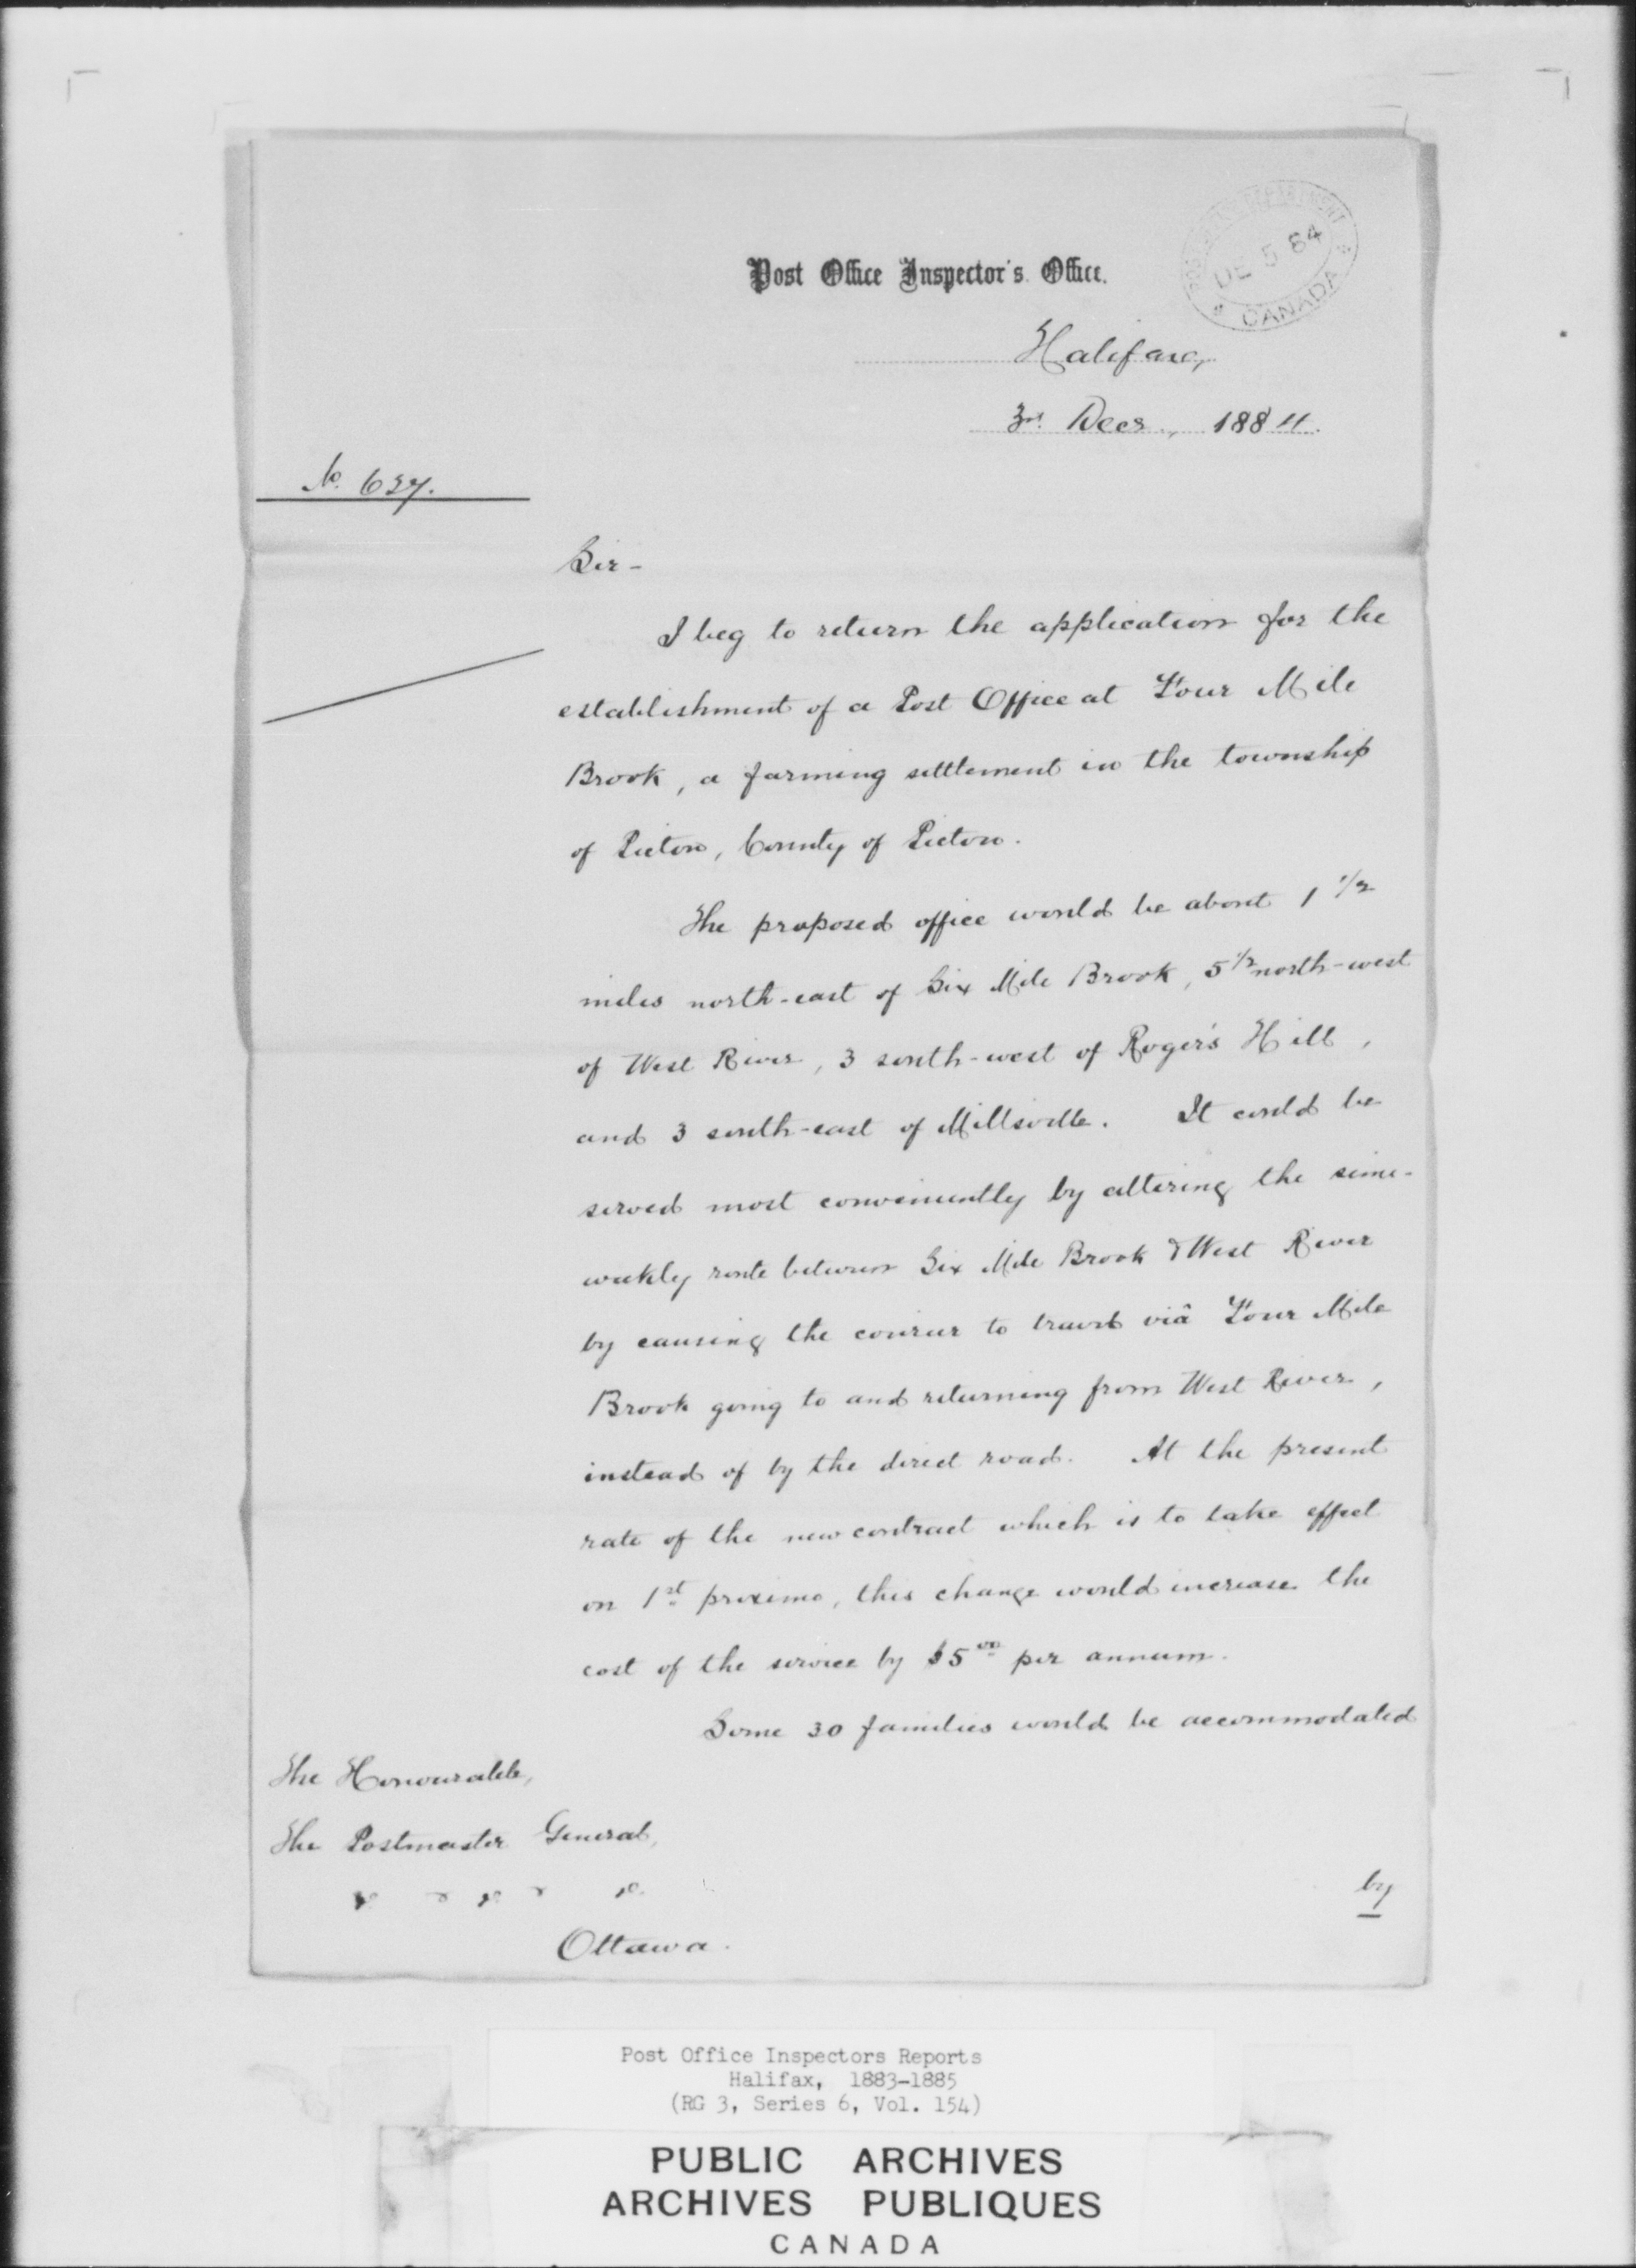 POST OFFICE DEPARTMENT
DE 5 84
CANADA
Post Office Inspector's Office.
Halifax,
3rd Decr., 1884.
No. 637.
Sir-
I beg to return the application for the
establishment of a Post Office at Four Mile
Brook, a farming settlement in the township
of Pictou, County of Pictou.
The proposed office would be about 1 1/2
miles north-east of Six Mile Brook, 5 1/2 north-west
of West River, 3 south-west of Roger's Hill,
and 3 south-east of Millsville. It could be
served most conveniently by altering the semi-
weekly route between Six Mile Brook & West River
by causing the courier to travel viâ Four Mile
Brook going to and returning from West River,
instead of by the direct road. At the present
rate of the new contract which is to take effect
on 1st proximo, this change would increase the
cost of the service by $5 00 per annum.
Some 30 families would be accommodated
The Honourable,
The Postmaster General,
Ottawa.
by
Post Office Inspectors Reports
Halifax, 1883-1885
(RG 3, Series 6, Vol. 154)
PUBLIC ARCHIVES
ARCHIVES PUBLIQUES
CANADA